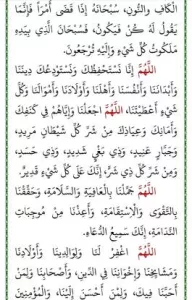 الْكَافِ وَالنُّونِ، سُبْحَانَهُ إِذَا قَضَى أَمْرًا فَإِنَّمَا
يَقُولُ لَهُ كُنْ فَيَكُونُ، فَسُبْحَانَ الَّذِي بِيَدِهِ
مَلَكُوتُ كُلِّ شَيْءٍ وَإِلَيْهِ تُرْجَعُونَ.
اللَّهُمَّ إِنَّا نَسْتَحْفِظُكَ وَنَسْتَوْدِعُكَ دِينَنَا
وَأَبْدَانَنَا وَأَنْفُسَنَا وَأَهْلَنَا وَأَوْلَادَنَا وَأَمْوَالَنَا وَكُلَّ
شَيْءٍ أَعْطَيْتَنَا، اللَّهُمَّ اجْعَلْنَا وَإِيَّاهُمْ فِي كَنَفِكَ
وَأَمَانِكَ وَعِيَاذِكَ مِنْ شَرِّ كُلِّ شَيْطَانٍ مَرِيدٍ،
وَجَبَّارٍ عَنِيدٍ، وَذِي بَغْيٍ شَدِيدٍ، وَذِي حَسَدٍ،
وَمِنْ شَرِّ كُلِّ ذِي شَرٍّ، إِنَّكَ عَلَى كُلِّ شَيْءٍ قَدِيرٌ.
اللَّهُمَّ جَمِّلْنَا بِالْعَافِيَةِ وَالسَّلَامَةِ، وَحَقِّقْنَا
بِالتَّقْوَى وَالِاسْتِقَامَةِ، وَأَعِذْنَا مِنْ مُوجِبَاتِ
النَّدَامَةِ، إِنَّكَ سَمِيعُ الدُّعَاءِ.
اللَّهُمَّ اغْفِرْ لَنَا وَلِوَالِدِينَا وَأَوْلَادِنَا
وَمَشَايِخِنَا وَإِخْوَانِنَا فِي الدِّينِ، وَأَصْحَابِنَا وَلِمَنْ
أَحَبَّنَا فِيكَ، وَلِمَنْ أَحْسَنَ إِلَيْنَا، وَالْمُؤْمِنِينَ